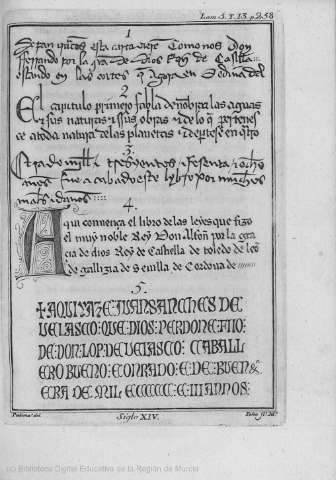 Lam. 5. T. 13. p. 258
1
Sepan quantos esta carta vieren Como nos Don
ferrando por la gra de Dios Rey de Castilla
estando en las cortes q agora en Medina del
2
El capitulo primero fabla de nombrar las aguas
e sus naturas e sus obras e de lo q pertenes
ce a toda natura de las planetas e depties e en q̃tro
3.
Era de mill e tresyentos e sesenta e ocho
annos fue acabado este lybro por muchos
males e danos
4.
Aqui comença el libro de las leyes que fizo
el muy noble Rey Don Alfon por la gra
cia de dios Rey de Castella de toledo de leo
de gallizia de Sevilla de Cordova de
5.
+ AQUI YAZE IUAN SANCHES DE
VELASCO: QUE DIOS: PERDONE: FIIO:
DE: DON: LOP: DE: VELASCO: CABALL
ERO BUENO: E: ONRADO: E: DE: BUEN
ERA DE MIL E CCCCC: E: III ANNOS:
Siglo XIV.
(c) Biblioteca Digital Educativa de la Región de Murcia